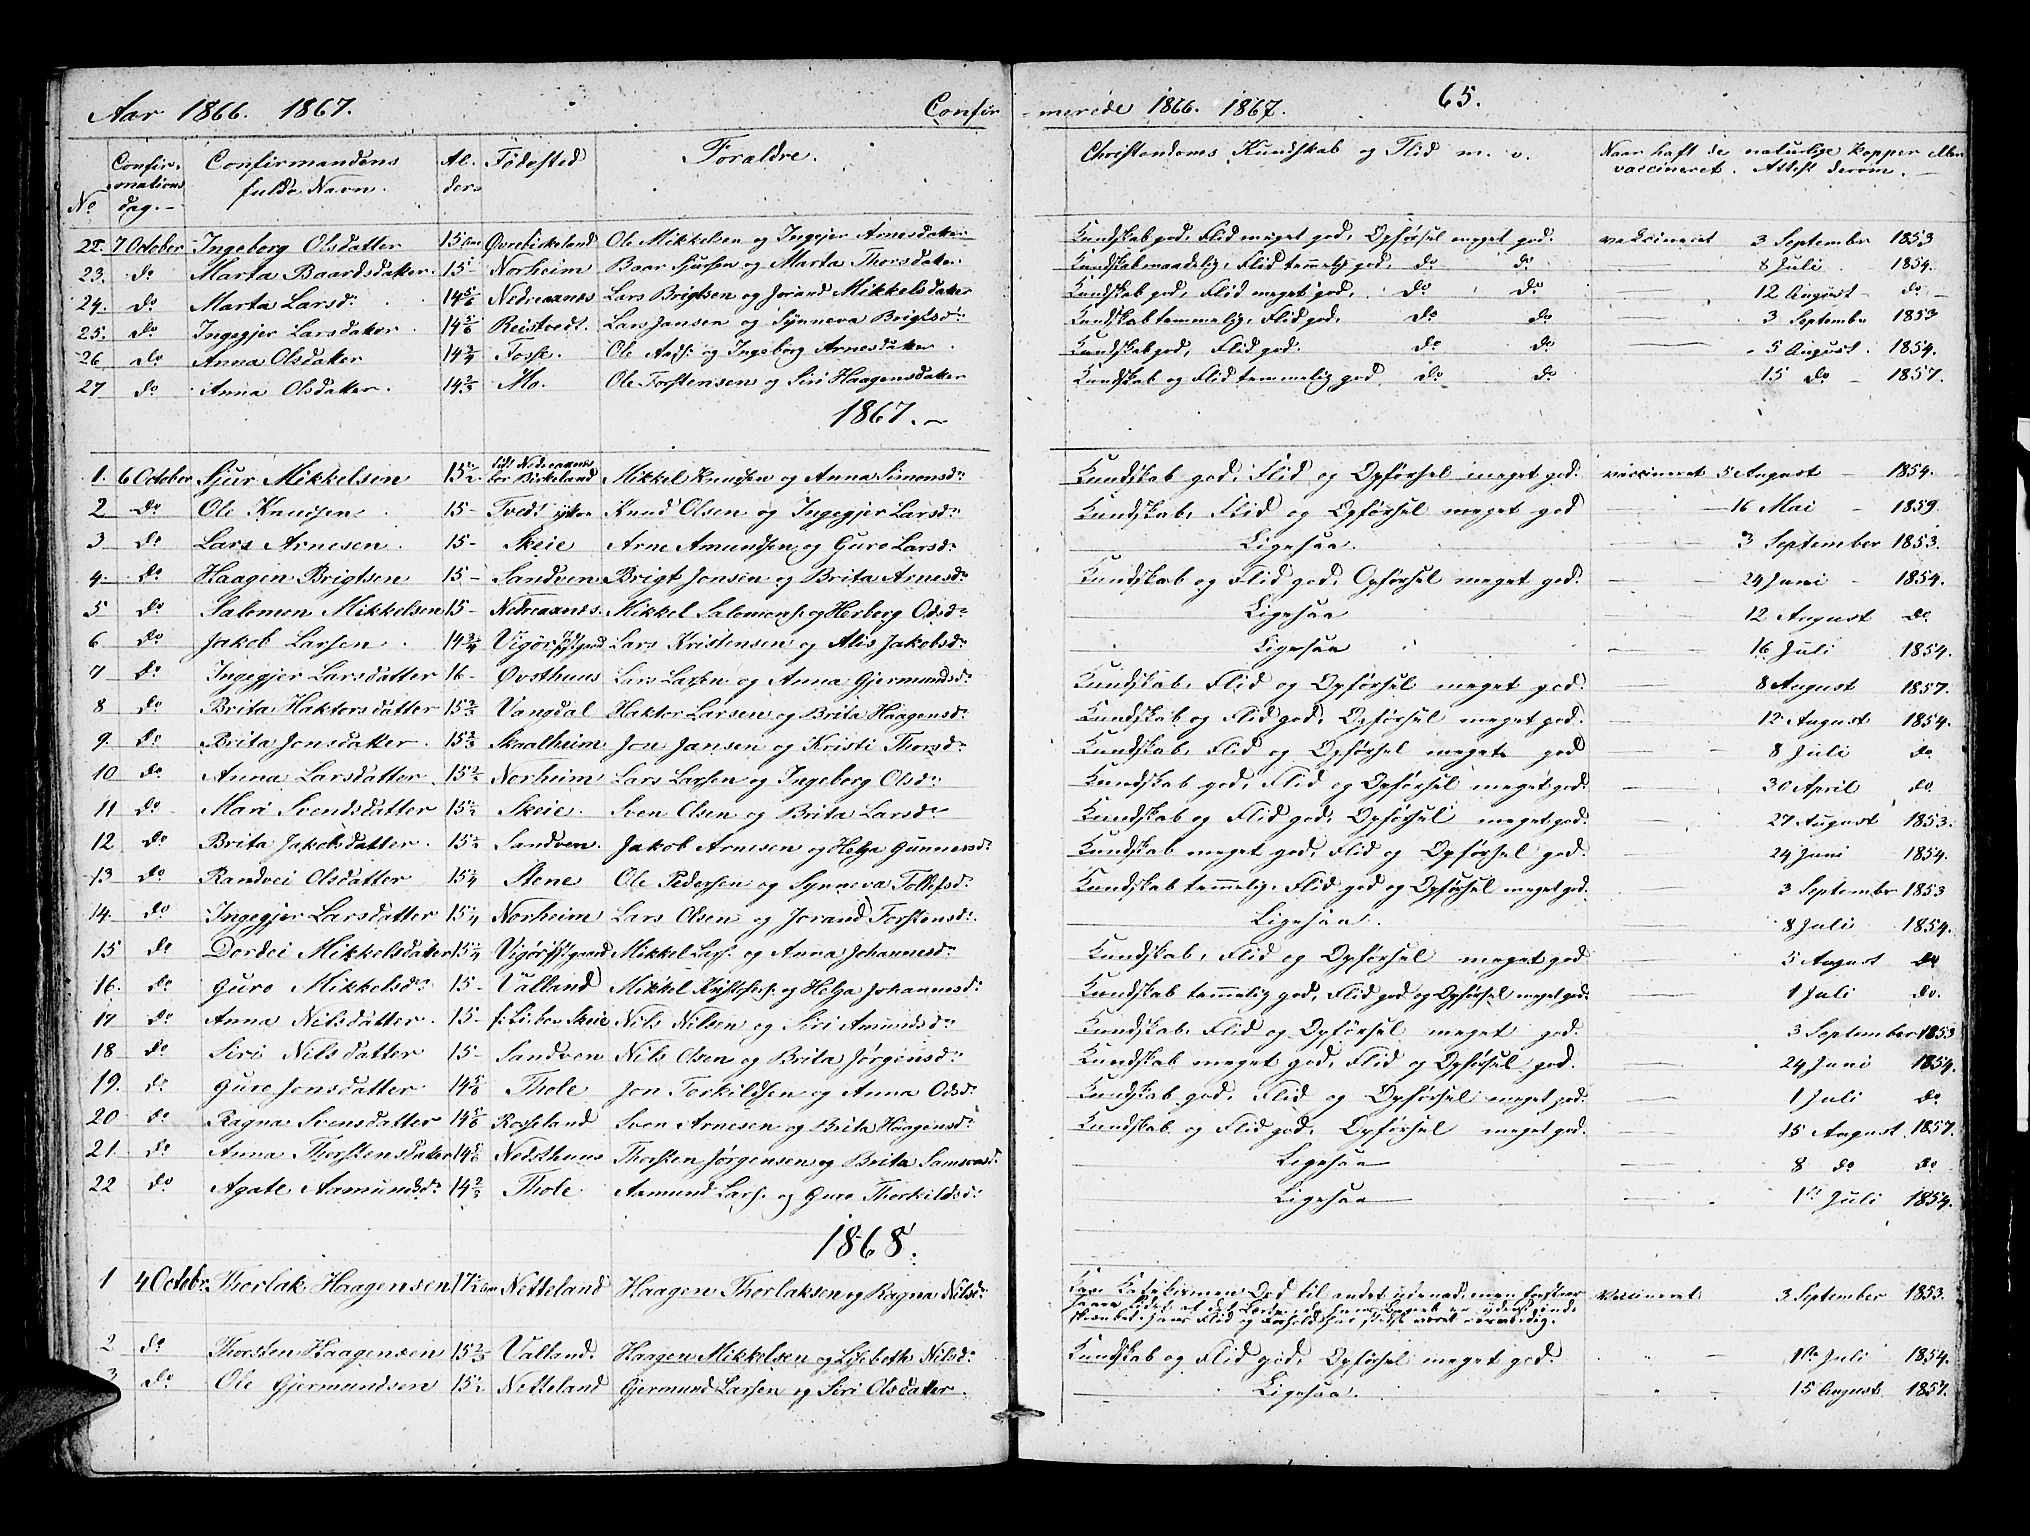 Aar 1866. 1867. Confir-merede 1866. 1867. 65.
No Confirmations dag. Confirmandens fulde Navn. Alder Fødested Forældre. Christendoms Kundskab og Flid m. v. Naar haft de naturlige Kopper eller vaccineret. Attest derom.
22. 7 October Ingeborg Olsdatter 15 Øvrebirkeland Ole Mikkelsen og Ingejer Arnesdatter Kundskab god, Flid meget god, Opførsel meget god. vakcineret 3 September 1853
23. do Marta Baardsdatter. 15 Norheim Baar Sjursen og Marta Thorsdatter Kundskab maadelig, Flid temmelig god, do do 8 Juli 1854.
24. do Marta Larsdr 14 5/6 Nedreaxnes Lars Brigtsen og Jorand Mikkelsdatter Kundskab god, Flid meget god, do do 12 August do
25. do Ingegjer Larsdatter 14 5/6 Reistvedt. Lars Jansen og Synneva Brigtsdr Kundskab temmelig, Flid god, do do 3 September 1853
26 do Anna Olsdatter 14 3/4 Fosse. Ole Aads. og Ingeborg Arnesdatter Kundskab god, Flid god. do do 5 August 1854.
27 do Anna Olsdatter. 14 2/3 Mo. Ole Torstensen og Siri Haagensdatter Kundskab og Flid temmelig god do do 15 do 1857.
1867.
1. 6 October Sjur Mikkelsen 15 1/2 født Nedreaxnes bor Birkeland Mikkel Knudsen og Anna Simonsdr Kundskab god, Flid og Opførsel meget god. vaccineret 5 August 1854.
2 do Ole Knudsen 15 Tvedt ytre Knud Olsen og Ingegjer Larsdr Kundskab, Flid og Opførsel meget god 16 Mai 1859.
3 do Lars Arnesen 15 Skeie Arne Amundsen og Guro Larsdr Ligesaa. 3 September 1853.
4. do Haagen Brigtsen 15 Sandven Brigt Jonsen og Brita Arnesdr Kundskab og Flid god, Opførsel meget god. 24 Juni 1854.
5 do Salomon Mikkelsen 15 Nedreaxnes. Mikkel Salomons. og Herborg Odsdr Ligesaa 12 August do
6 do Jakob Larsen 14 3/4 Vigør Lars Kristensen og Alis Jakobsdr Ligesaa 16 Juli 1854.
7 do Ingegjer Larsdatter 16 Øvsthuus Lars Larsen og Anna Gjermundsdr Kundskab, Flid og Opførsel meget god. 8 August 1857.
8 do Brita Haktorsdatter 15 2/3 Vangdal Haktor Larsen og Brita Haagensdr Kundskab og Flid god, Opførsel meget god. 12 August 1854.
9. do Brita Jonsdatter. 15 2/3 Skaalheim Jon Jansen og Kristi Thorsdr Kundskab, Flid og Opførsel meget god 8 Juli do
10 do Anna Larsdatter 15 2/3 Norheim Lars Larsen og Ingeborg Olsdr Kundskab god, Flid og Opførsel meget god. 30 April do
11 do Mari Svendsdatter 15 1/2 Skeie. Sven Olsen og Brita Larsdr Kundskab og Flid god, Opførsel meget god. 27 August 1853.
12 do Brita Jakobsdatter. 15 Sandven. Jakob Arnesen og Helga Gunnarsdr Kundskab meget god, Flid og Opførsel god. 24 Juni 1854.
13 do Randvei Olsdatter 15 1/4 Stene Ole Pedersen og Synneva Tollefsdr Kundskab temmelig, Flid god og Opførsel meget god. 3 September 1853
14. do Ingegjer Larsdatter 15 1/4 Norheim Lars Olsen og Jorand Torstensdr Ligesaa. 8 Juli 1854.
15 do Dordei Mikkelsdatter 15 1/4 Mikkel Lars. og Anna Johannesdr Kundskab, Flid og Opførsel meget god 5 August do
16. do Guro Mikkelsdr 15 Valland Mikkel Kristofers. og Helga Johannesdr Kundskab temmelig god, Flid god og Opførsel meget god. 1 Juli do.
17 do Anna Nilsdatter. 15 Skeie Nils Nilsen og Siri Amundsdr Kundskab, Flid og Opførsel meget god. 3 September 1853
18 do Siri Nilsdatter 15 Sandven Nils Olsen og Brita Jørgensdr Kundskab meget god, Flid og Opførsel god. 24 Juni 1854.
19. do Guro Jonsdatter 14 5/6 Thole Jon Torkildsen og Anna Odsdr Kundskab god, Flid og Opførsel meget god. 1 Juli do
20 do Ragna Svensdatter 14 5/6 Rosseland Sven Arnesen og Brita Haagensdr Kundskab og Flid god, Opførsel meget god. 15 August 1857.
21. do Anna Thorstensdatter 14 5/6 Nedsthuus Thorsten Jørgensen og Brita Samsonsdr Ligesaa 8 do do
22 do Agate Aamundsdr 14 2/3 Thole Aamund Lars. og Guro Thorkildsdr Ligesaa 1ste Juli 1854.
1868.
1 4 Octobr. Thorlak Haagensen 17 1/2 Netteland Haagen Thorlaksen og Ragna Nilsdr Kan Katekismen Ord til andet udenad, men fatter vaccineret 3 September 1853.
2 do Thorsten Haagensen 15 2/3 Valland. Haagen Mikkelsen og Lisebeth Nilsdr Kundskab og Flid god, Opførsel meget god. 1ste Juli 1854.
3 do Ole Gjermundsen 15 1/2 Netteland Gjermund Larsen og Siri Olsdatter. Ligesaa. 15 August 1857.